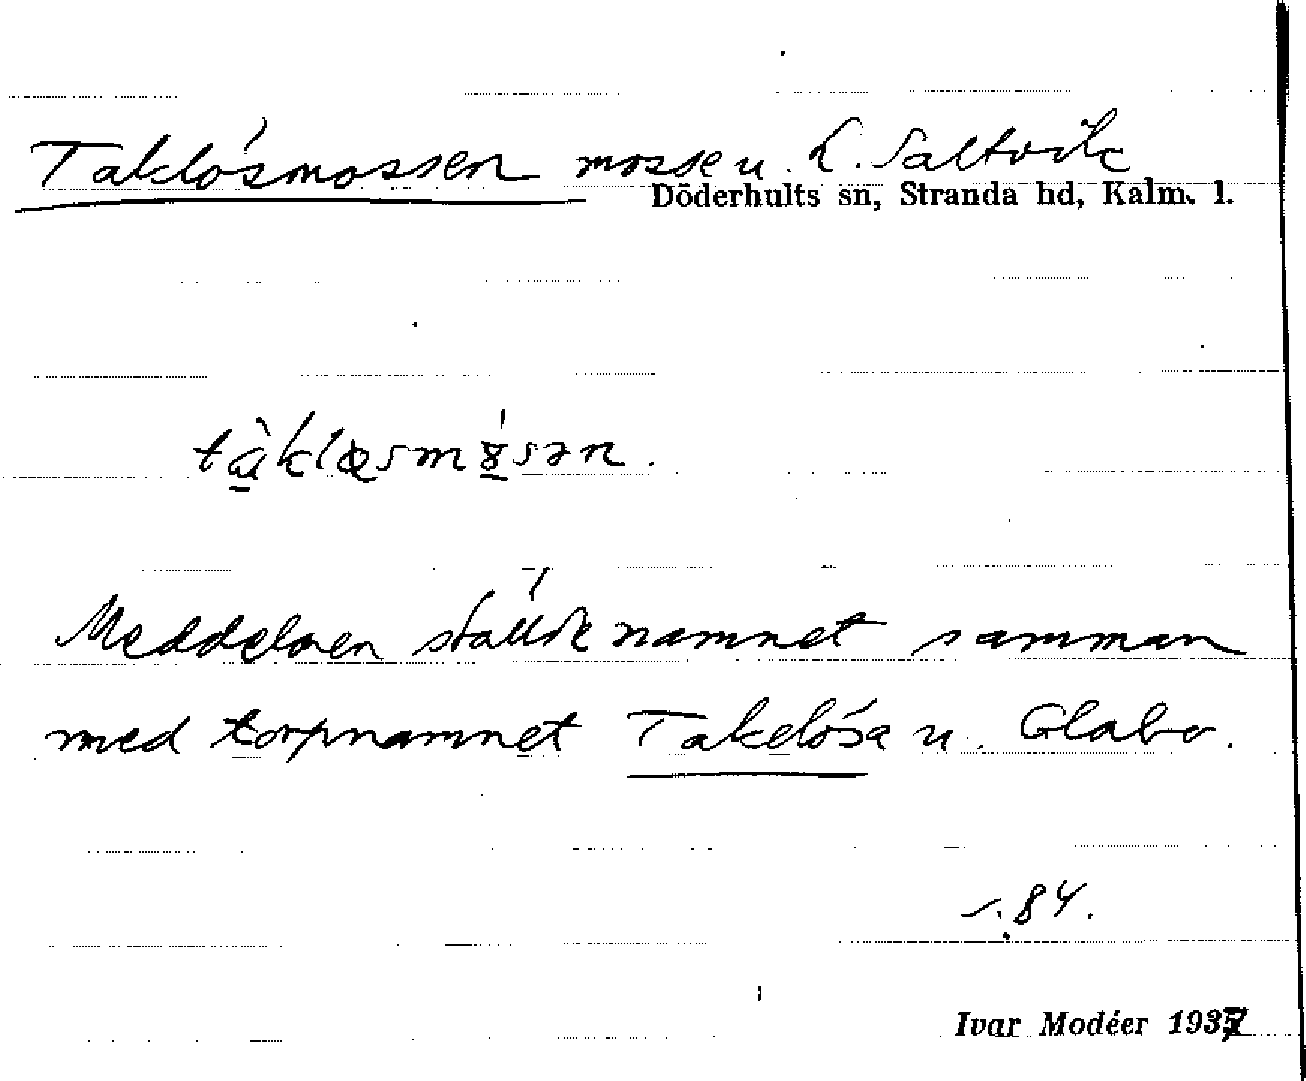 Taklösmossen mosse u. L. Saltvik
Döderhults sn, Stranda hd, Kalm. l.
Meddelaren ställde namnet samman
med torpnamnet Taklösa u. Glabo.
s. 84.
Ivar Modéer 1937